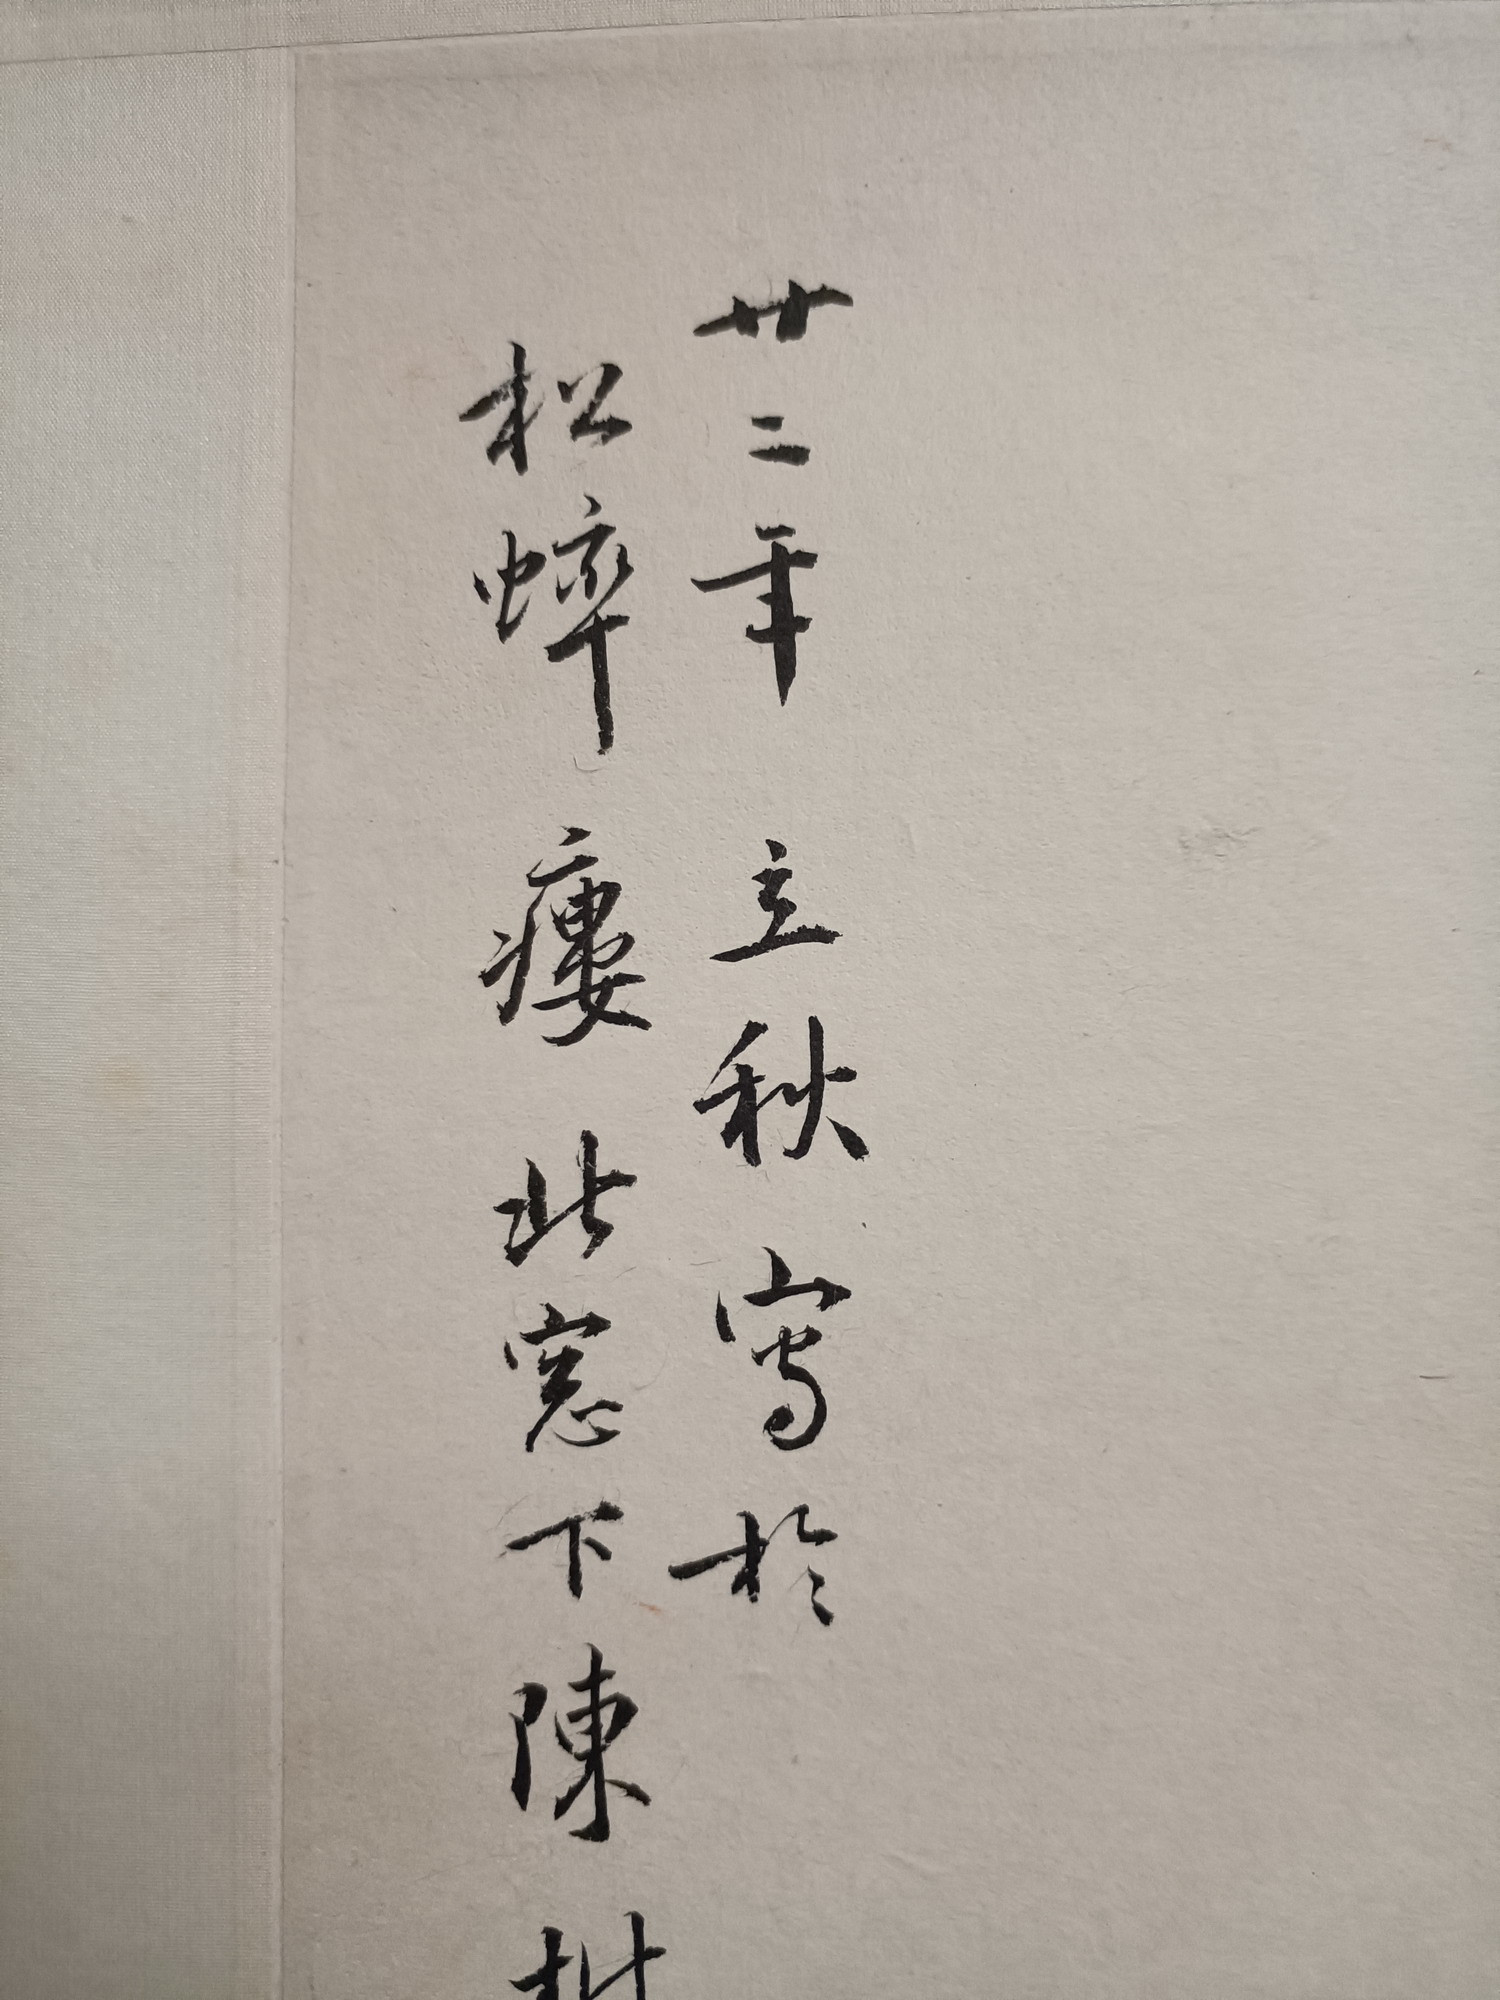 卅二年立秋寫於
松蟀瘻北窓下陳